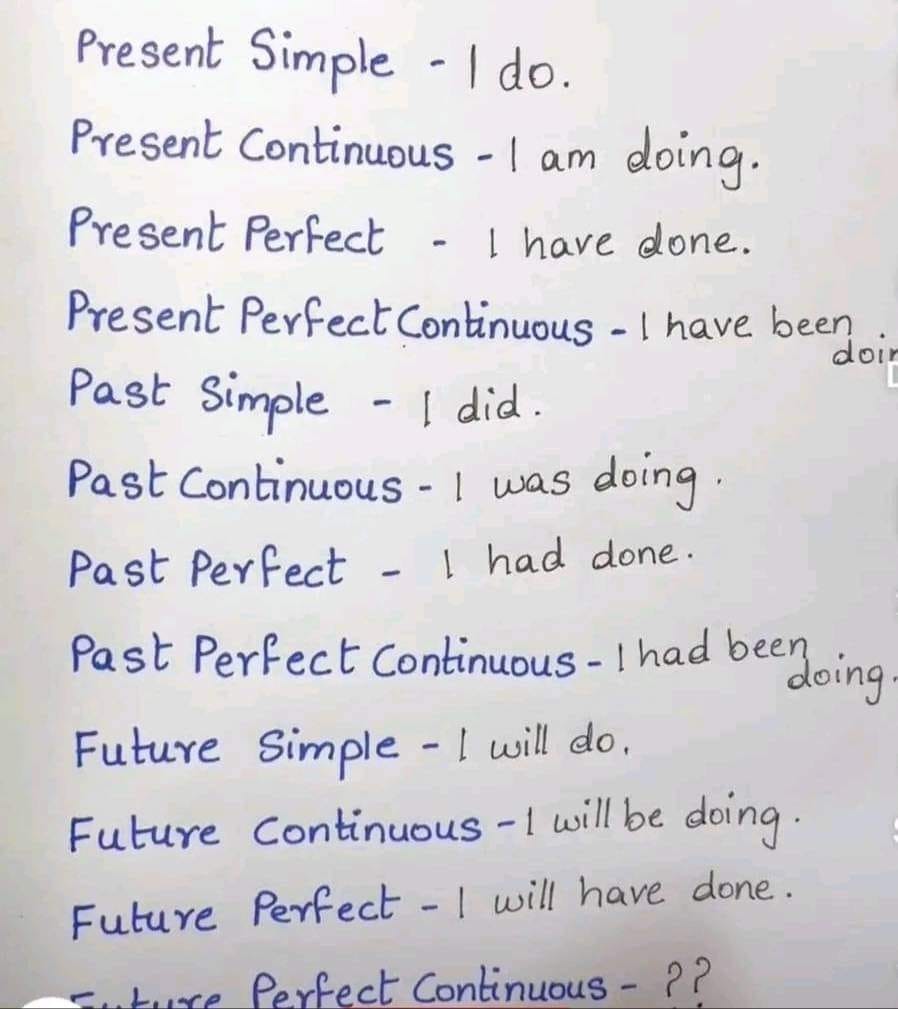 Present Simple - I do.
Present Continuous - I am doing.
Present Perfect - I have done.
Present Perfect Continuous - I have been
doin
Past Simple - I did.
Past Continuous - I was doing.
Past Perfect - I had done.
Past Perfect Continuous - I had been
doing.
Future Simple - I will do.
Future Continuous - I will be doing.
Future Perfect - I will have done.
Future Perfect Continuous - ??